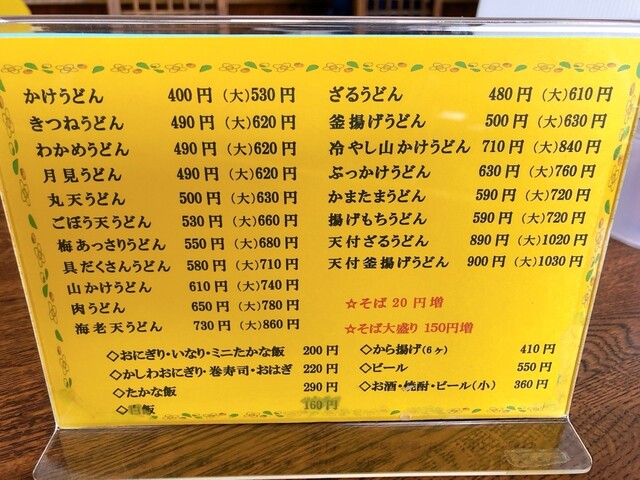 かけうどん 400円(大)530円
きつねうどん 490円(大)620円
わかめうどん 490円(大)620円
月見うどん 490円(大)620円
丸天うどん 500円(大)630円
ごぼう天うどん 530円(大)660円
梅あっさりうどん 550円(大)680円
具だくさんうどん 580円(大)710円
山かけうどん 610円(大)740円
肉うどん 650円(大)780円
海老天うどん 730円(大)860円
ざるうどん 480円(大)610円
釜揚げうどん 500円(大)630円
冷やし山かけうどん 710円(大)840円
ぶっかけうどん 630円(大)760円
かまたまうどん 590円(大)720円
揚げもちうどん 590円(大)720円
天付ざるうどん 890円(大)1020円
天付釜揚げうどん 900円(大)1030円
☆そば20円増
☆そば大盛り150円増
◇おにぎり・いなり・ミニたかな飯 200円
◇かしわおにぎり・巻寿司・おはぎ 220円
◇たかな飯 290円
◇白飯 160円
◇から揚げ(6ヶ) 410円
◇ビール 550円
◇お酒・焼酎・ビール(小) 360円